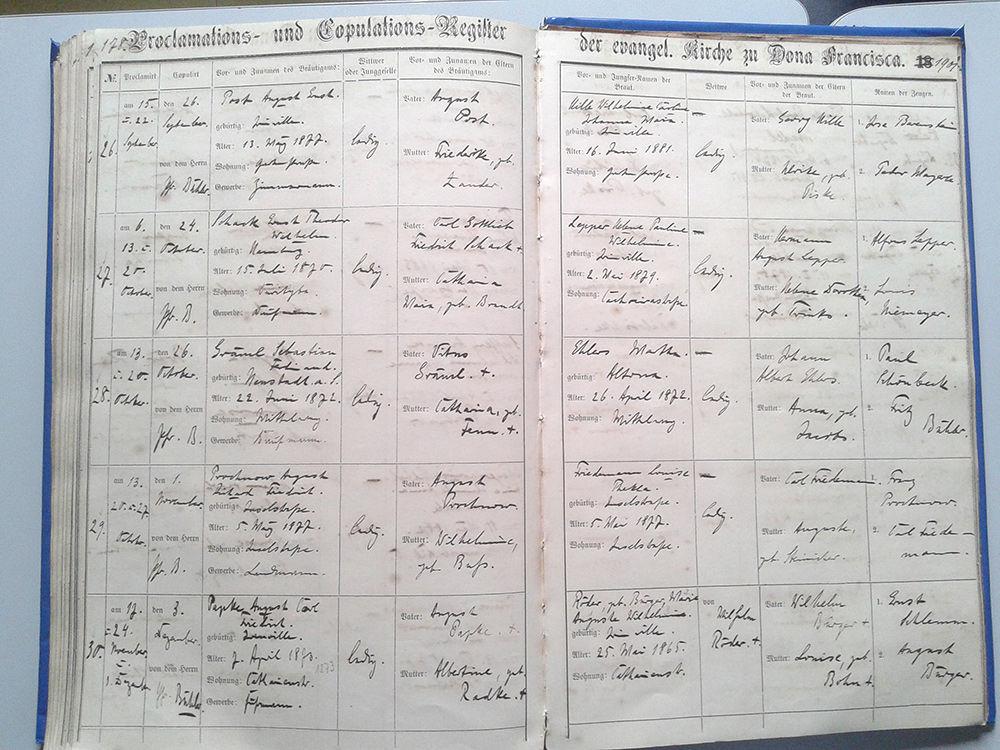 Proclamations- und Copulations-Register
der evangel. Kirche zu Dona Francisca. 18
№.
Proclamirt
Copulirt
Vor- und Zunamen des Bräutigams:
Wittwer oder Junggeselle
Vor- und Zunamen der Eltern des Bräutigams:
Vor- und Jungfer-Namen der Braut.
Wittwe
Vor- und Zunamen der Eltern der Braut.
Namen der Zeugen.
26.
am 15.
u. 22.
September.
den 26.
September
von dem Herrn
Pfr. Bühler.
Post August Ernst.
gebürtig: Joinville.
Alter: 13. März 1877.
Wohnung:
Gewerbe: Zimmermann.
ledig.
Vater: August
Post.
Mutter: Friederike, geb.
Zander.
Wille Wilhelmine Caroline
Johanna Maria.
gebürtig: Joinville
Alter: 16. Juni 1881.
Wohnung:
ledig.
Vater: Georg Wille
Mutter: Ulrike, geb.
Piske.
1. Jose
2.
27.
am 6.
13. u.
20.
October.
den 24.
October.
von dem Herrn
Pfr. B.
Schack Ernst Theodor
Wilhelm
gebürtig: Hamburg
Alter: 15. Juli 1870.
Wohnung: Curityba.
Gewerbe: Kaufmann.
ledig.
Vater: Carl Gottlieb
Friedrich Schack +
Mutter: Catharina
Maria, geb. Brandt
Lepper Helene Pauline
Wilhelmine.
gebürtig: Joinville.
Alter: 2. Mai 1879.
Wohnung: Catharinastrasse
ledig.
Vater: Hermann
August Lepper
Mutter: Helene Dorothea
geb. Trinks.
1. Alfons Lepper.
2. Louis
Niemeyer.
28.
am 13.
u. 20.
October.
den 26.
October.
von dem Herrn
Pfr. B.
Sebastian
Ferdinand.
gebürtig: Neustadt a. S.
Alter: 22. Juni 1872.
Wohnung: Mittelweg
Gewerbe: Kaufmann.
ledig.
Vater: Vitus
Mutter: Catharina, geb.
Ehlers Martha.
gebürtig: Altona.
Alter: 26. April 1872.
Wohnung: Mittelweg.
ledig.
Vater: Johann
Albert Ehlers.
Mutter: Anna, geb.
Jacobs.
1. Paul
Schönbeck.
2. Fritz
Bühler.
29.
am 13.
20. u. 27.
October.
den 1.
November.
von dem Herrn
Pfr. B.
Prochnow August
Richard Friedrich.
gebürtig: Inselstrasse.
Alter: 5. März 1877.
Wohnung: Inselstrasse.
Gewerbe: Landmann.
ledig.
Vater: August
Prochnow.
Mutter: Wilhelmine,
geb. Buss.
Friedemann Louise
Thekla.
gebürtig: Inselstrasse.
Alter: 5. Mai 1877.
Wohnung: Inselstrasse.
ledig.
Vater: Carl Friedemann
Mutter: Auguste,
1. Franz
Prochnow.
2. Carl Friede-
mann.
30.
am 17.
u. 24.
November
u.
1. Dezember
den 3.
Dezember.
von dem Herrn
Pfr. Bühler
Papke, August Carl
Friedrich.
gebürtig: Joinville.
Alter: 7. April 1873. 1873
Wohnung: Catharinenstr.
Gewerbe:
ledig.
Vater: August
Papke. +
Mutter: Albertine, geb.
Radtke. +
Röder, geb. Bürger, Maria
Auguste Wilhelmine
gebürtig: Joinville.
Alter: 25. Mai 1865.
Wohnung: Catharinenstr.
von
Wilhelm
Röder +.
Vater: Wilhelm
Bürger +
Mutter: Louise, geb.
Bohn +.
1. Ernst
Schlemm.
2. August
Bürger.